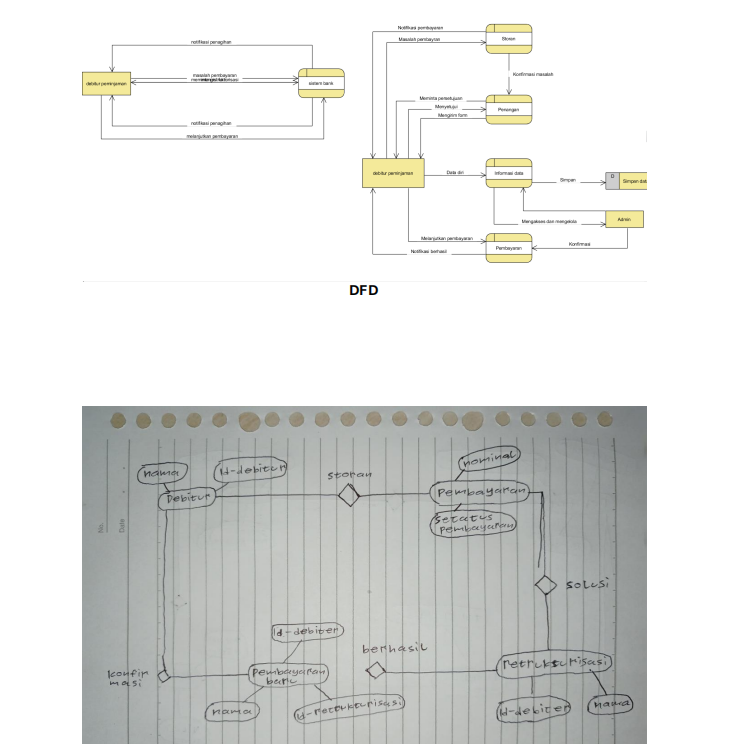 notifikasi penagihan
debitur peminjaman
masalah pembayaran
sistem bank
notifikasi penagihan
melanjutkan pembayaran
Notifikasi pembayaran
Masalah pembayran
Storan
Konfirmasi masalah
Meminta persetujuan
Menyetujui
Mengirim form
Penangan
debitur peminjaman
Data diri
Informasi data
Simpan
D
Simpan dat
Mengakses dan mengelola
Admin
Melanjutkan pembayaran
Notifikasi berhasil
Pembayaran
Konfirmasi
DFD
No.
Date
nama
Id-debitur
Debitur
storan
nominal
Pembayaran
Setatus
Pembayaran
solusi
Id-debiter
berhasil
retrukturisasi
konfir
masi
Pembayaran
baru
nama
Id-retrukturisasi
Id-debiter
nama